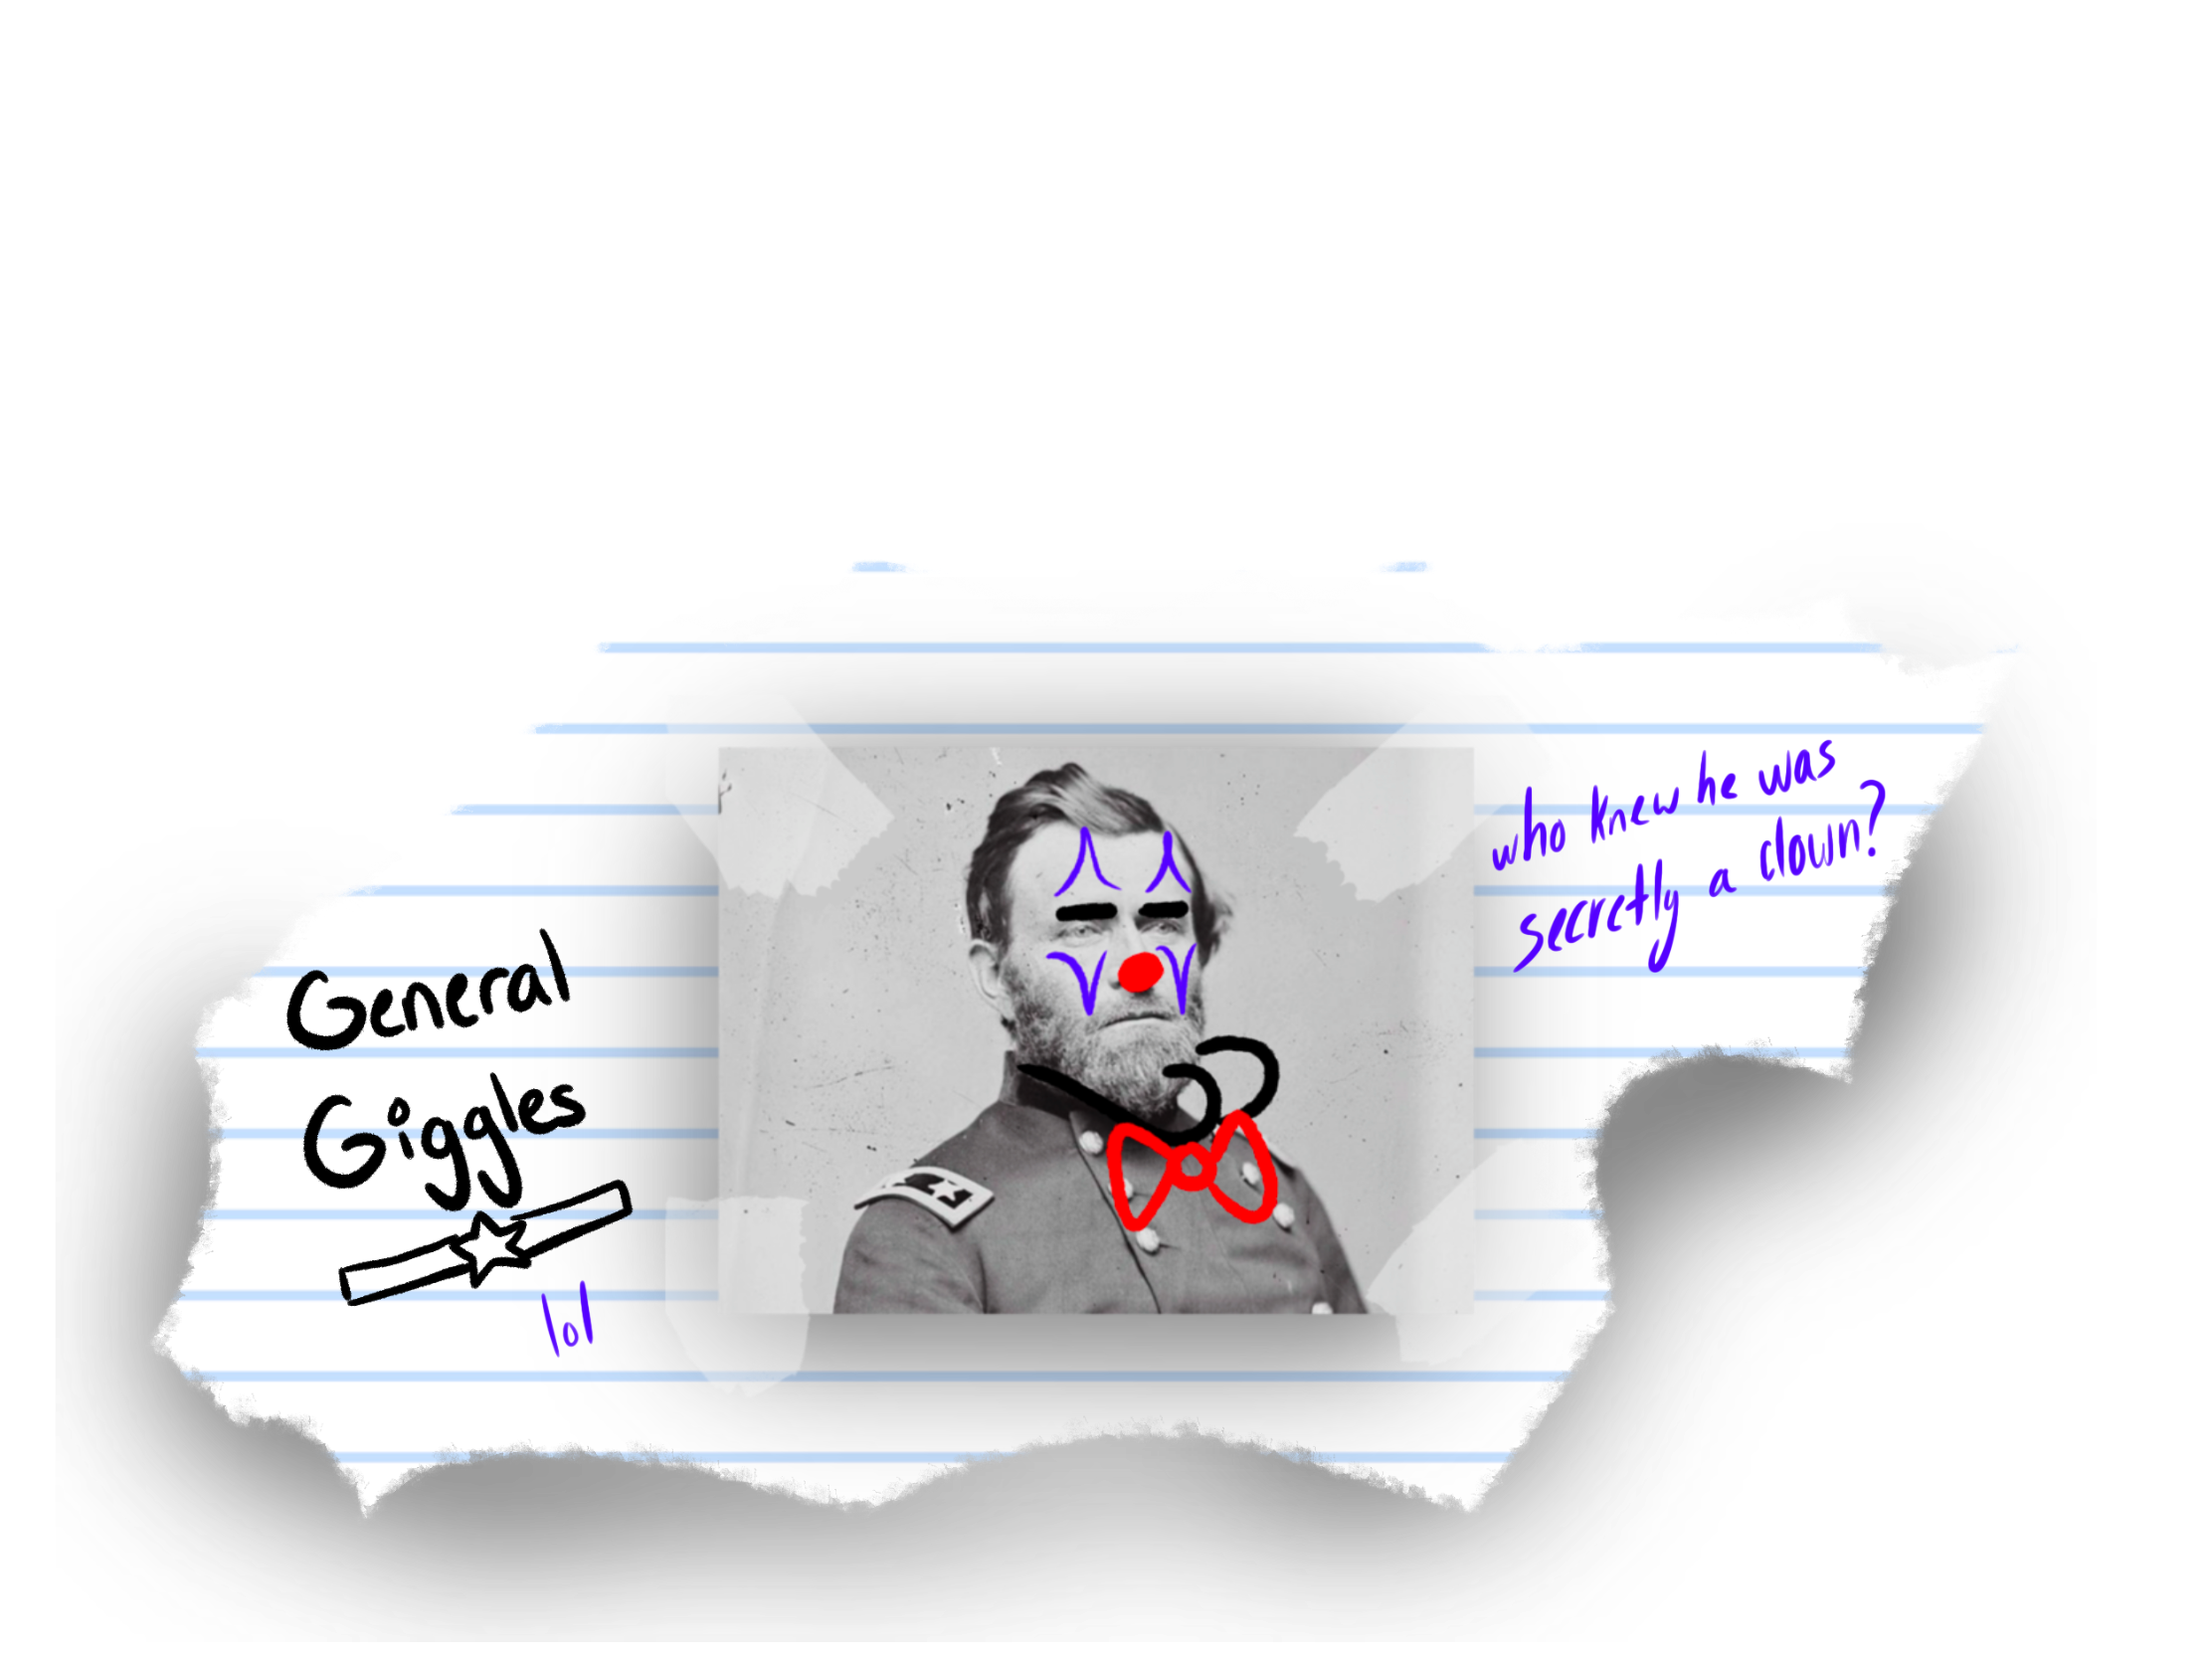 General
Giggles
lol
who knew he was
secretly a clown?